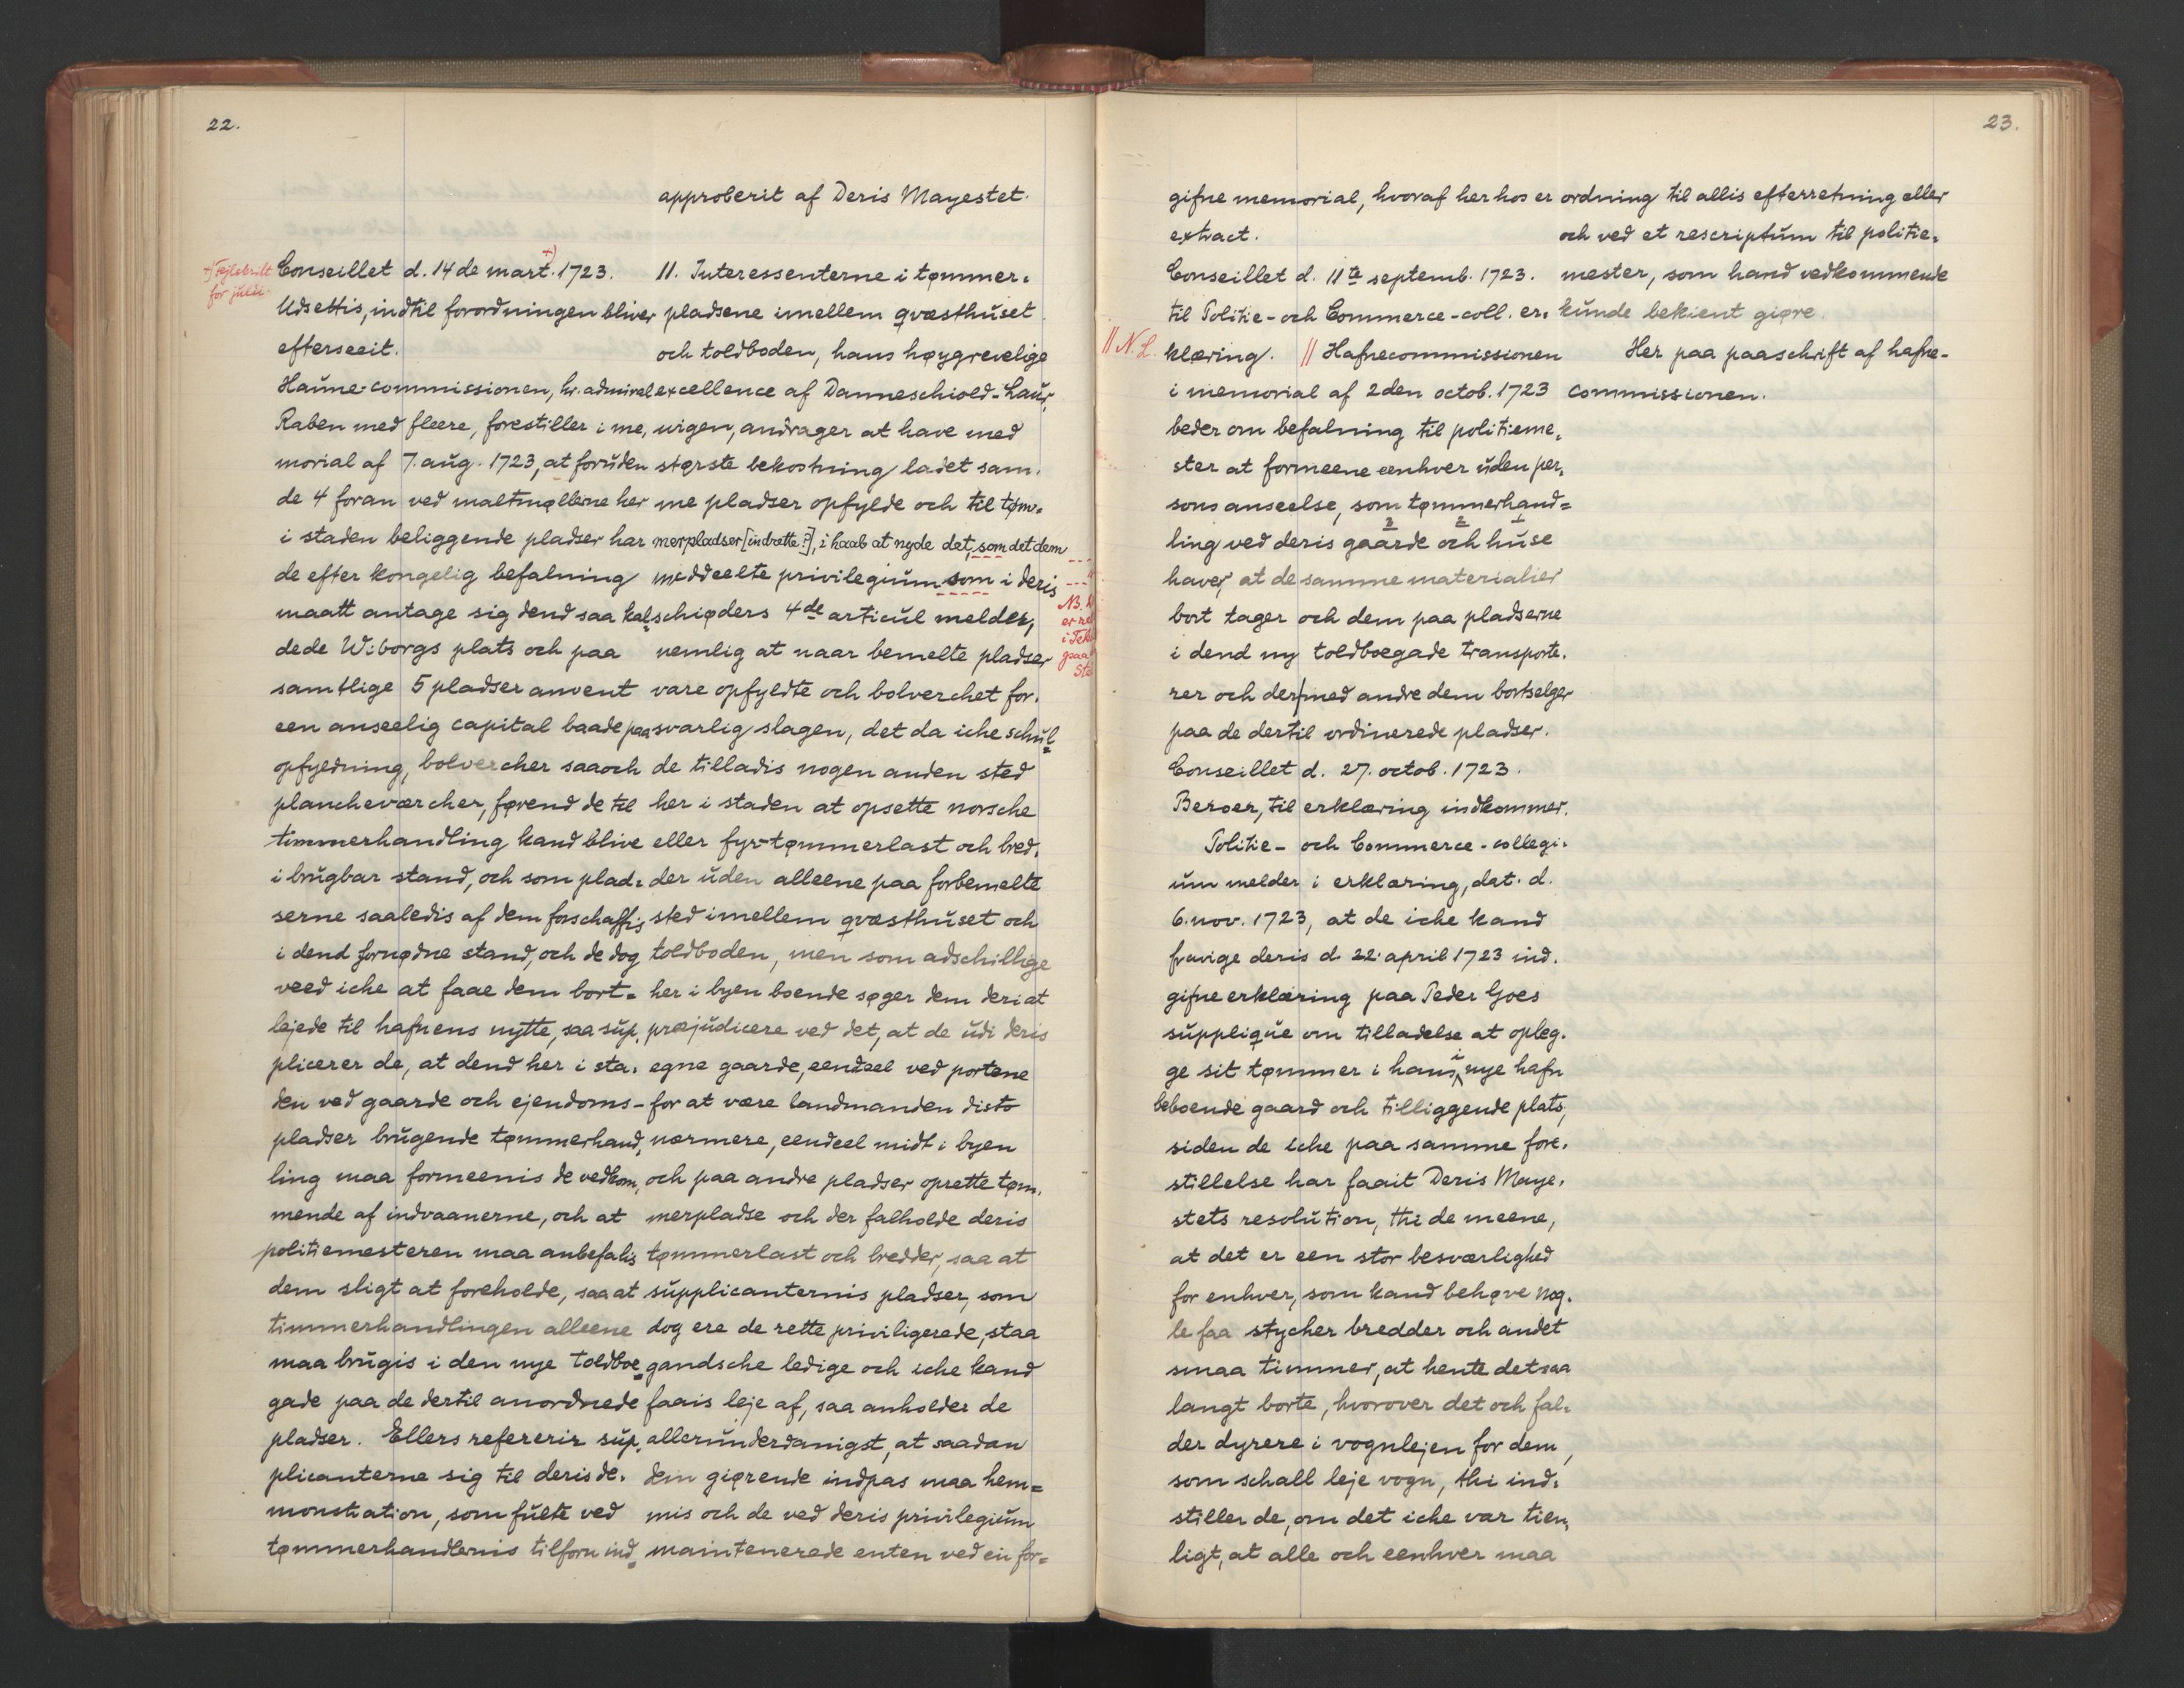 22.
+) Fejlskrift
for julii.
Conseillet d. 14 de mart. +) 1723.
Udsettis, indtil forordningen bliver
efterseeit.
Haune-commissionen, hr. admiral
Raben med fleere, forestiller i me,
morial af 7. aug. 1723, at foruden
de 4 foran ved maltmøllerne her
i staden beliggende pladser har
de efter kongelig befalning
maatt antage sig dend saa kal=
dede Wiborgs plats och paa
samtlige 5 pladser anvent
een anseelig capital baade paa
opfyldning, bolvercher saaoch
plancheværcher, førend de til
timmerhandling kand blive
i brugbar stand, och som plad=
serne saaledis af dem forschaffis
i dend fornødne stand, och de dog
veed iche at faae dem bort=
lejede til hafnens nytte, saa sup,
plicerer de, at dend her i sta=
den ved gaarde och ejendoms-
pladser brugende tømmerhand,
ling maa formeenis de vedkom,
mende af indvaanerne, och at
politiemesteren maa anbefalis
dem sligt at foreholde, saa at
timmerhandlingen alleene
maa brugis i den nye toldboe=
gade paa de dertil anordnede
pladser. Ellers refererir sup,
plicanterne sig til deris de=
monstration, som fulte ved
tømmerhandlernis tilforn ind=
approberit af Deris Mayestet.
11. Interessenterne i tømmer=
pladsene imellem qvæsthuset
och toldboden, hans høygrevelige
excellence af Danneschiold-Laur,
wigen, andrager at have med
største bekostning ladet sam=
me pladser opfylde och til tøm=
merpladser [indrette?], i haab at nyde det, som det dem
meddeelte privilegium som i deris
schiøders 4de articul melder,
nemlig at naar bemelte pladser
vare opfyldte och bolverchet for=
svarlig slagen, det da iche schul=
de tilladis nogen anden sted
her i staden at opsette norsche
eller fyr-tømmerlast och bred=
der uden alleene paa forbemelte
sted imellem qvæsthuset och
toldboden, men som adschillige
her i byen boende søger dem deri at
præjudicere ved det, at de udi deris
egne gaarde, eendeel ved portene
for at være landmanden disto
nærmere, eendeel midt i byen
och paa andre pladser oprette tøm,
merpladse och der falholde deris
tømmerlast och bredder, saa at
supplicanternis pladser, som
dog ere de rette priviligerede, staa
gandsche ledige och iche kand
faais leje af, saa anholder de
allerunderdanigst, at saadan
dem giørende indpas maa hem=
mis och de ved deris privilegium
maintenerede enten ved ein for=
23.
gifne memorial, hvoraf her hos er
extract.
Conseillet d. 11te septemb. 1723.
til Politie- och Commerce-coll. er=
|| N. L. klæring. || Hafnecommissionen
i memorial af 2den octob. 1723
beder om befalning til politieme,
ster at formeene eenhver uden per,
sons anseelse, som tømmerhand=
ling ved deris gaarde och huse
haver, at de samme materialier
bort tager och dem paa pladserne
i dend ny toldboegade transporte=
rer och der/med andre dem bortselger
paa de dertil ordinerede pladser.
Conseillet d. 27. octob. 1723.
Beroer, til erklæring indkommer.
Politie- och Commerce-collegi=
um melder i erklæring, dat. d.
6. nov. 1723, at de iche kand
fravige deris d. 22. april 1723 ind=
gifne erklæring paa Peder Goes
supplique om tilladelse at opleg=
ge sit tømmer i hans i nye hafn
beboende gaard och tilliggende plats,
siden de iche paa samme fore=
stillelse har faait Deris Maye=
stets resolution, thi de meene,
at det er een stor besværlighed
for enhver, som kand behøve nog=
le faa stycher bredder och andet
smaa timmer, at hente det saa
langt borte, hvorover det och fal=
der dyrere i vognlejen for dem,
som schall leje vogn, thi ind=
stiller de, om det iche var tien,
ligt, at alle och eenhver maa
ordning til allis efterretning eller
och ved et rescriptum til politie=
mester, som hand vedkommende
kunde bekient giøre.
Her paa paaschrift af hafne-
commissionen.